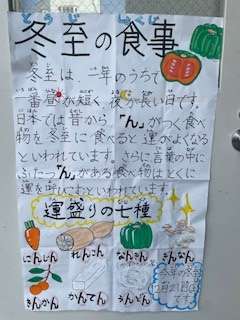 とうじ しょくじ
冬至の食事
冬至は、一年のうちで
一番昼が短く、夜が長い日です。
日本では昔から「ん」がつく食べ
物を冬至に食べると運がよくなる
といわれています。さらに言葉の中に
ふたつ「ん」がある食べ物はとくに
運を呼びこむといわれています。
運盛りの七種
にんじん れんこん なんきん ぎんなん
きんかん かんてん うんどん
今年の冬至
です。